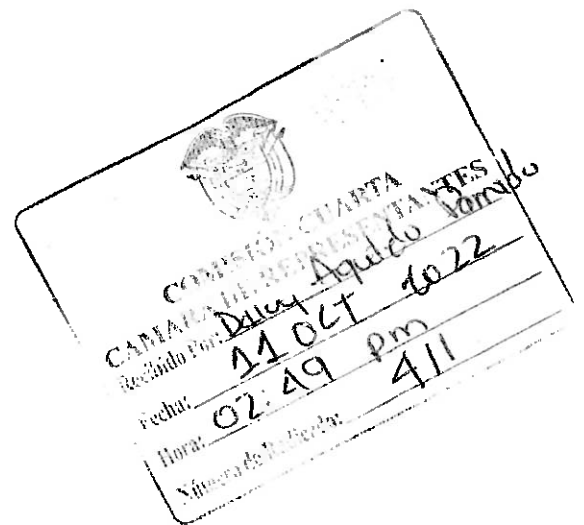 COMISIÓN CUARTA
CAMARA DE REPRESENTANTES
Recibido Por: Agudelo
Fecha: 11 OCT 2022
Hora: 02:49 pm
Número de Radicado: 411